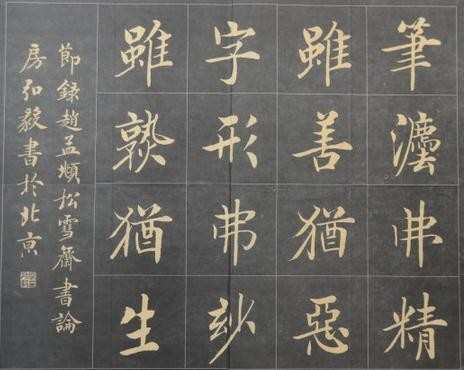 筆灋弗精
雖善猶惡
字形弗玅
雖熟猶生
節錄趙孟頫松雪齋書論
房弘毅書於北京